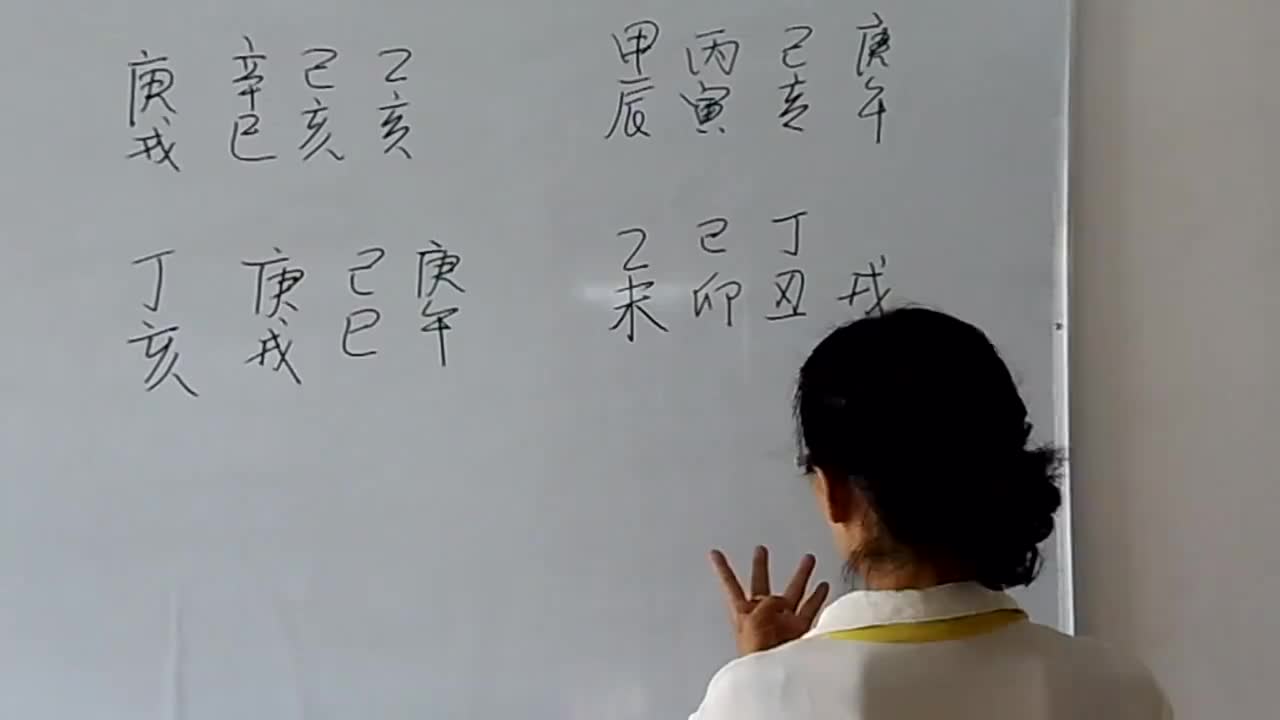 庚 辛 己 乙
戌 巳 亥 亥
甲 丙 己 庚
辰 寅 亥 午
丁 庚 己 庚
亥 戌 巳 午
乙 己 丁
未 卯 丑 戌